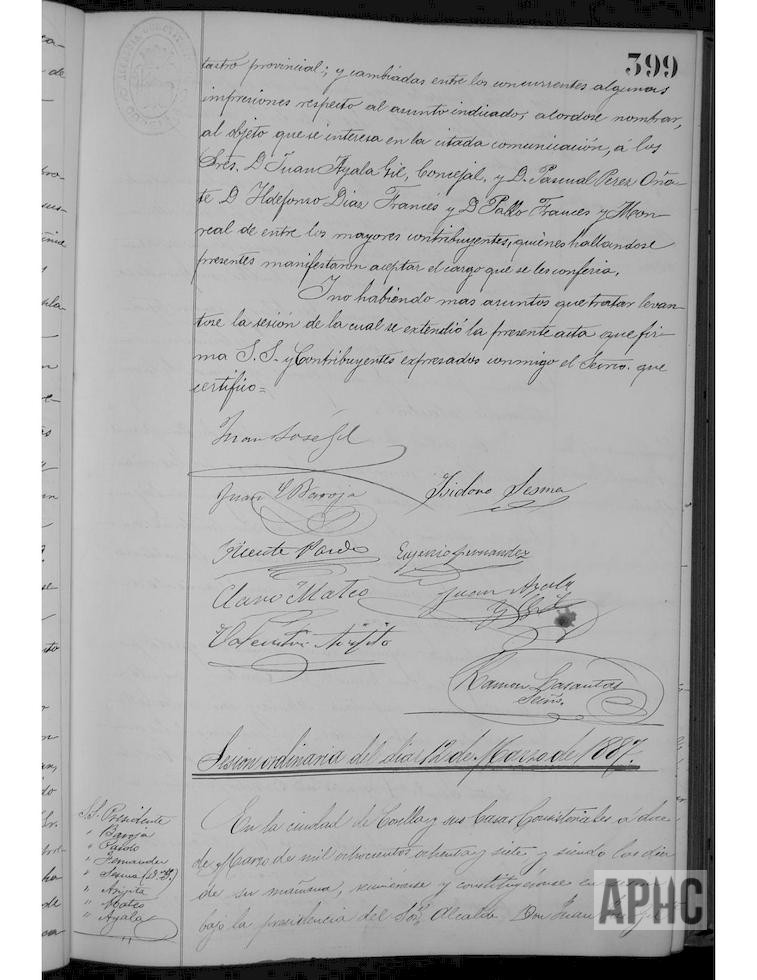 399
tastro provincial; y cambiadas entre los concurrentes algunas
impresiones respecto al asunto indicado, acordose nombrar,
al objeto que se interesa en la citada comunicación, á los
Sres. D. Juan Ayala Gil, Concejal, y D. Pascual Perez Oña-
te D Ildefonso Diaz Francés y D Pablo Frances y Mon-
real de entre los mayores contribuyentes, quienes hallandose
presentes manifestaron aceptar el cargo que se les conferia.
Y no habiendo mas asuntos que tratar levan-
tose la sesión de la cual se extendió la presente acta que fir-
ma S.S. y Contribuyentes expresados conmigo el Secrio. que
certifico=
Juan José Gil
Juan L Barroja
Isidoro Sesma
Vicente Pardo
Eugenio Fernandez
Claro Mateo
Juan Ayala
y Gil
Valentin Arigita
Ramon Lasantas
Secrio.
Sesion ordinaria del dia 12 de Marzo de 1887.
S.S. Presidente
" Baroja
" Pardo
" Fernandez
" Sesma (D. I.)
" Arigita
" Mateo
" Ayala
En la ciudad de Corella y sus Casas Consistoriales á doce
de Marzo de mil ochocientos ochenta y siete y siendo las diez
de su mañana, reunierónse y constituyéronse en
bajo la presidencia del Sor. Alcalde Don Juan
APHC